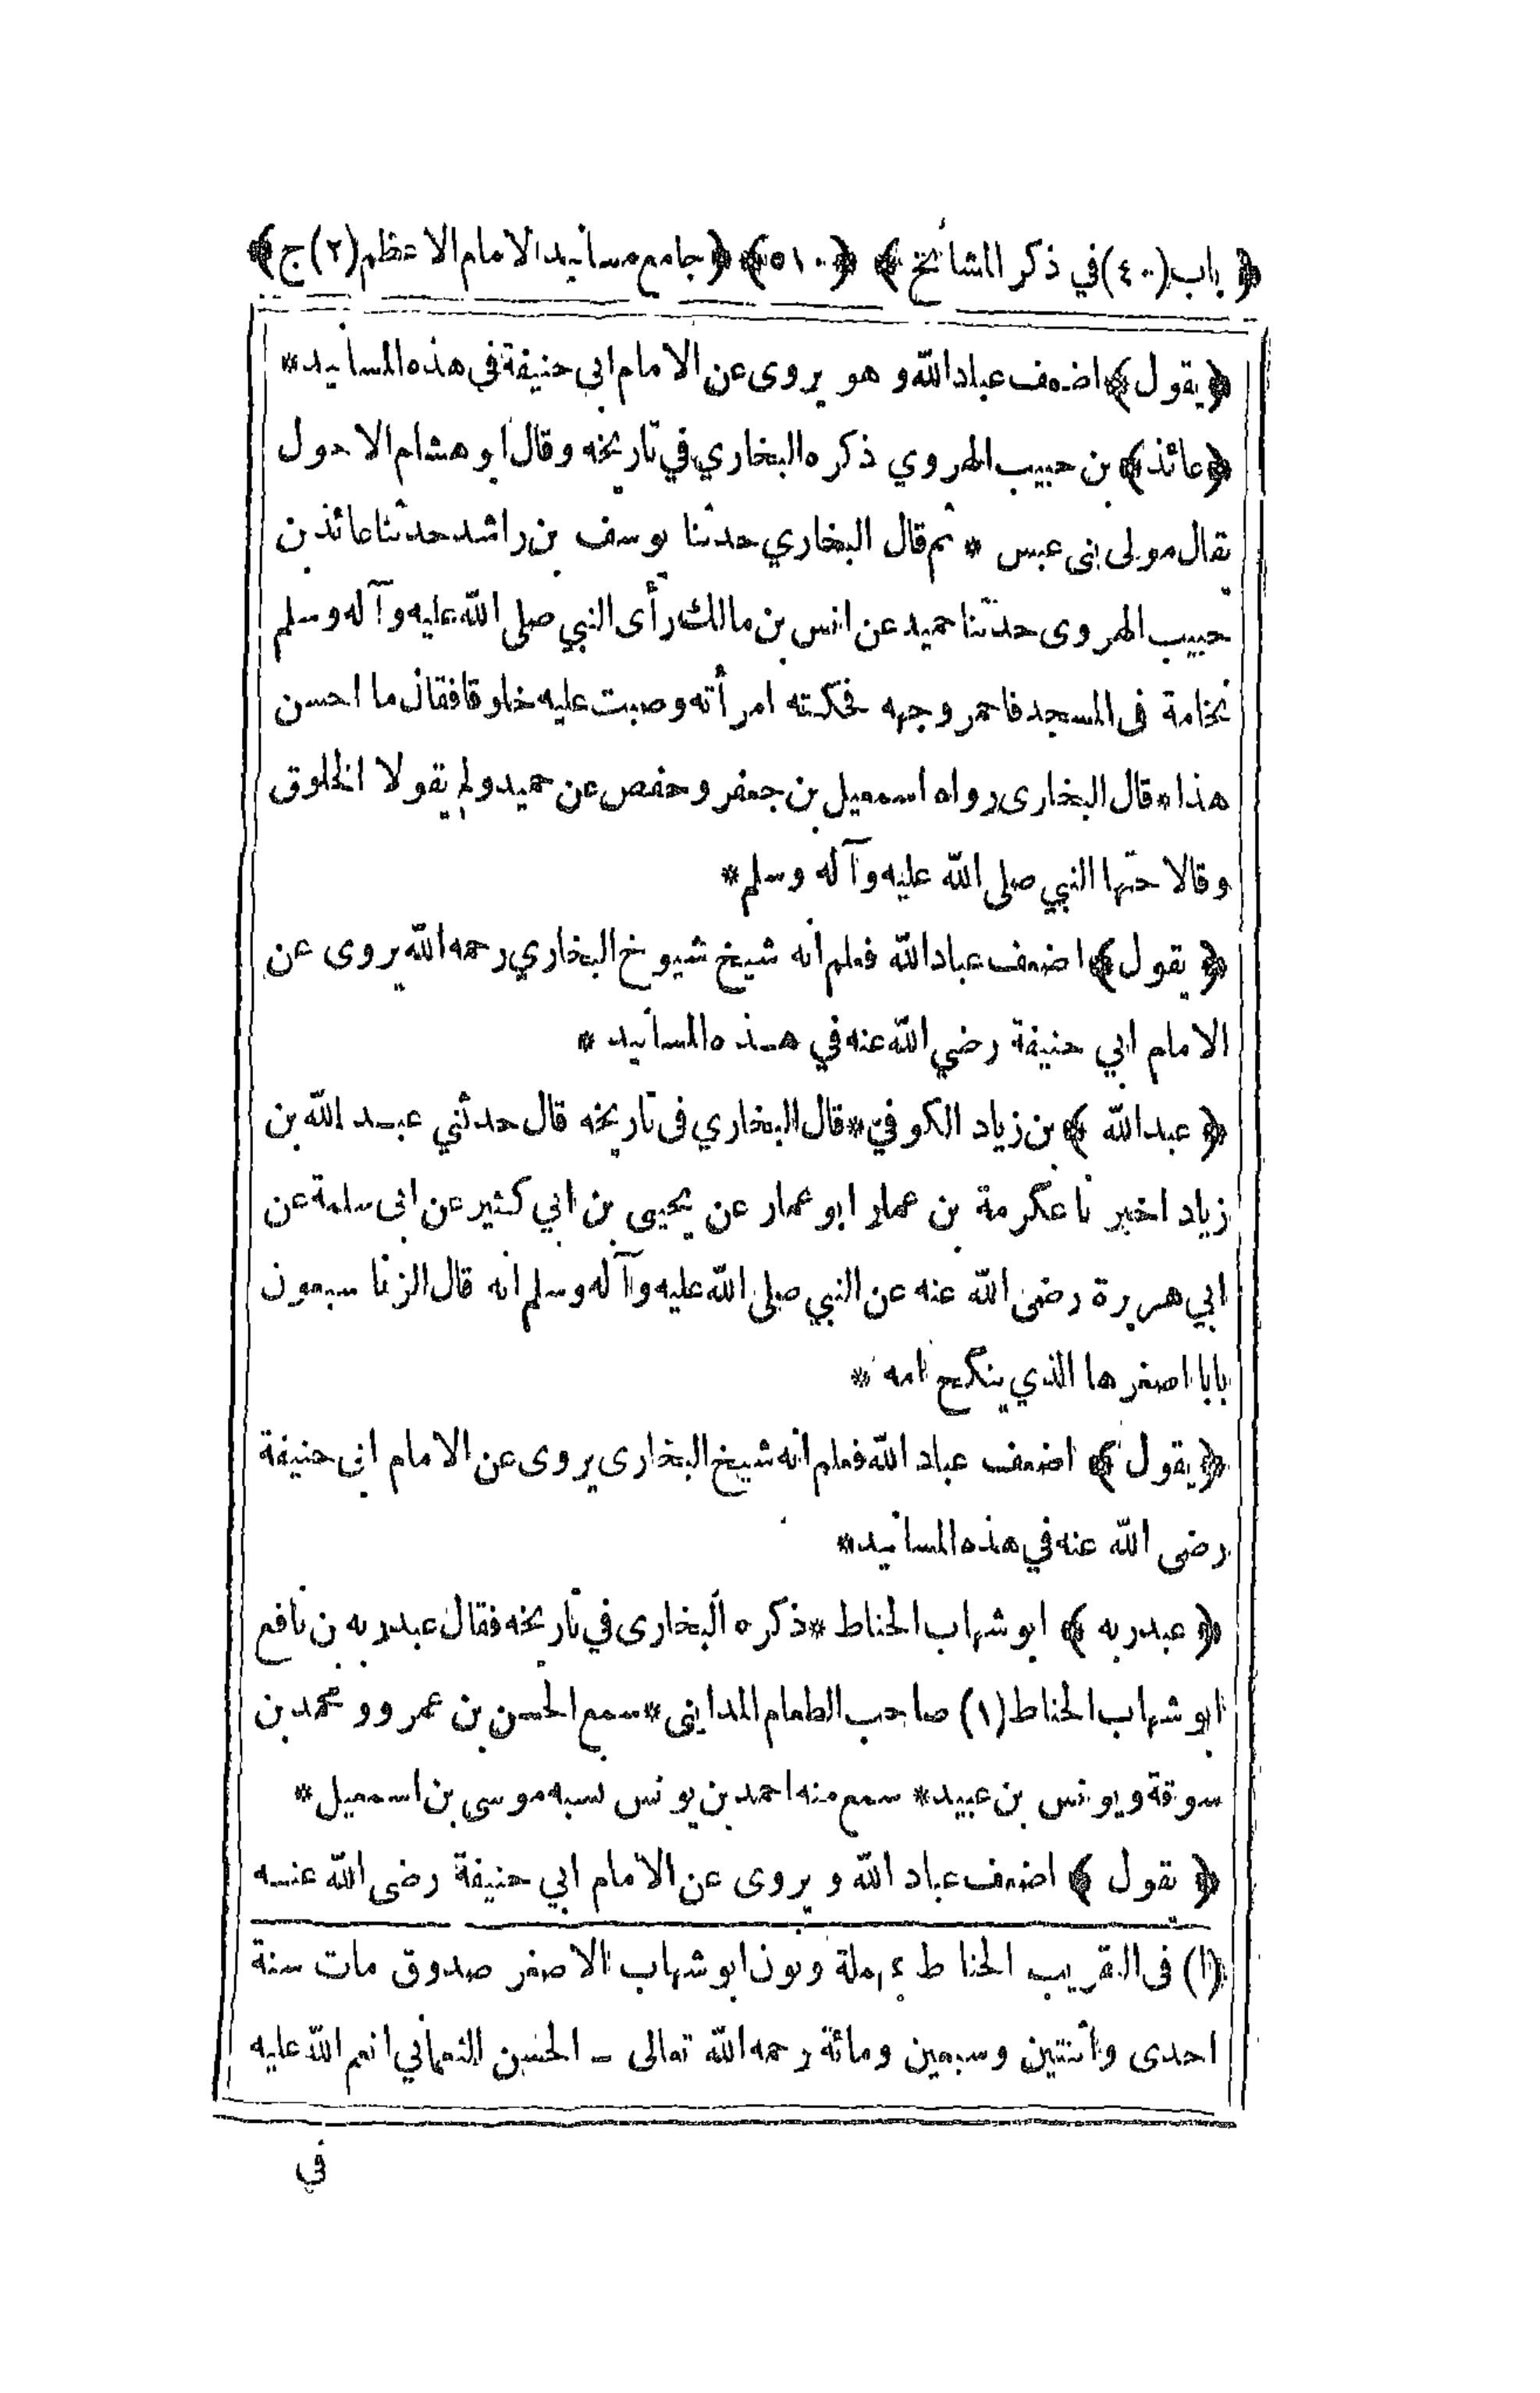 ﴿ باب (٤٠) في ذكر المشائخ ﴾ ﴿ ٥١٠ ﴾ ﴿ جامع مسانيد الامام الاعظم (٢) ج ﴾
﴿ يقول ﴾ اضعف عباد الله و هو يروى عن الامام ابي حنيفة في هذه المسانيد *
﴿ عائذ ﴾ بن حبيب الهروي ذكره البخاري في تاريخه وقال ابو هشام الاحول
يقال مولى بنى عبس * ثم قال البخاري حدثنا يوسف بن راشد حدثنا عائذ بن
حبيب الهروى حدثنا حميد عن انس بن مالك رأى النبي صلى الله عليه وآله وسلم
نخامة فى المسجد فاحمر وجهه فحكته امرأته وصبت عليه خلوقا فقال ما احسن
هذا * قال البخارى رواه اسمعيل بن جعفر و حفص عن حميد ولم يقولا الخلوق
وقالا حتها النبي صلى الله عليه وآله وسلم *
﴿ يقول ﴾ اضعف عباد الله فعلم انه شيخ شيوخ البخاري رحمه الله يروى عن
الامام ابي حنيفة رضي الله عنه في هذه المسانيد *
﴿ عبد الله ﴾ بن زياد الكوفي * قال البخاري فى تاريخه قال حدثني عبد الله بن
زياد اخبرنا عكرمة بن عمار ابو عمار عن يحيى بن ابي كثير عن ابى سلمة عن
ابي هريرة رضى الله عنه عن النبي صلى الله عليه وآله وسلم انه قال الزنا سبعون
بابا اصغرها الذي ينكح امه *
﴿ يقول ﴾ اضعف عباد الله فعلم انه شيخ البخارى يروى عن الامام ابى حنيفة
رضى الله عنه في هذه المسانيد *
﴿ عبد ربه ﴾ ابو شهاب الحناط * ذكره البخارى في تاريخه فقال عبد ربه بن نافع
ابو شهاب الحناط (١) صاحب الطعام المدايني * سمع الحسن بن عمرو و محمد بن
سوقة ويونس بن عبيد * سمع منه احمد بن يونس نسبه موسى بن اسمعيل *
﴿ يقول ﴾ اضعف عباد الله و يروى عن الامام ابي حنيفة رضى الله عنه
(١) فى التقريب الحناط بمهملة ونون ابو شهاب الاصغر صدوق مات سنة
احدى واثنتين وسبعين ومائة رحمه الله تعالى - الحسن النعماني انعم الله عليه
في